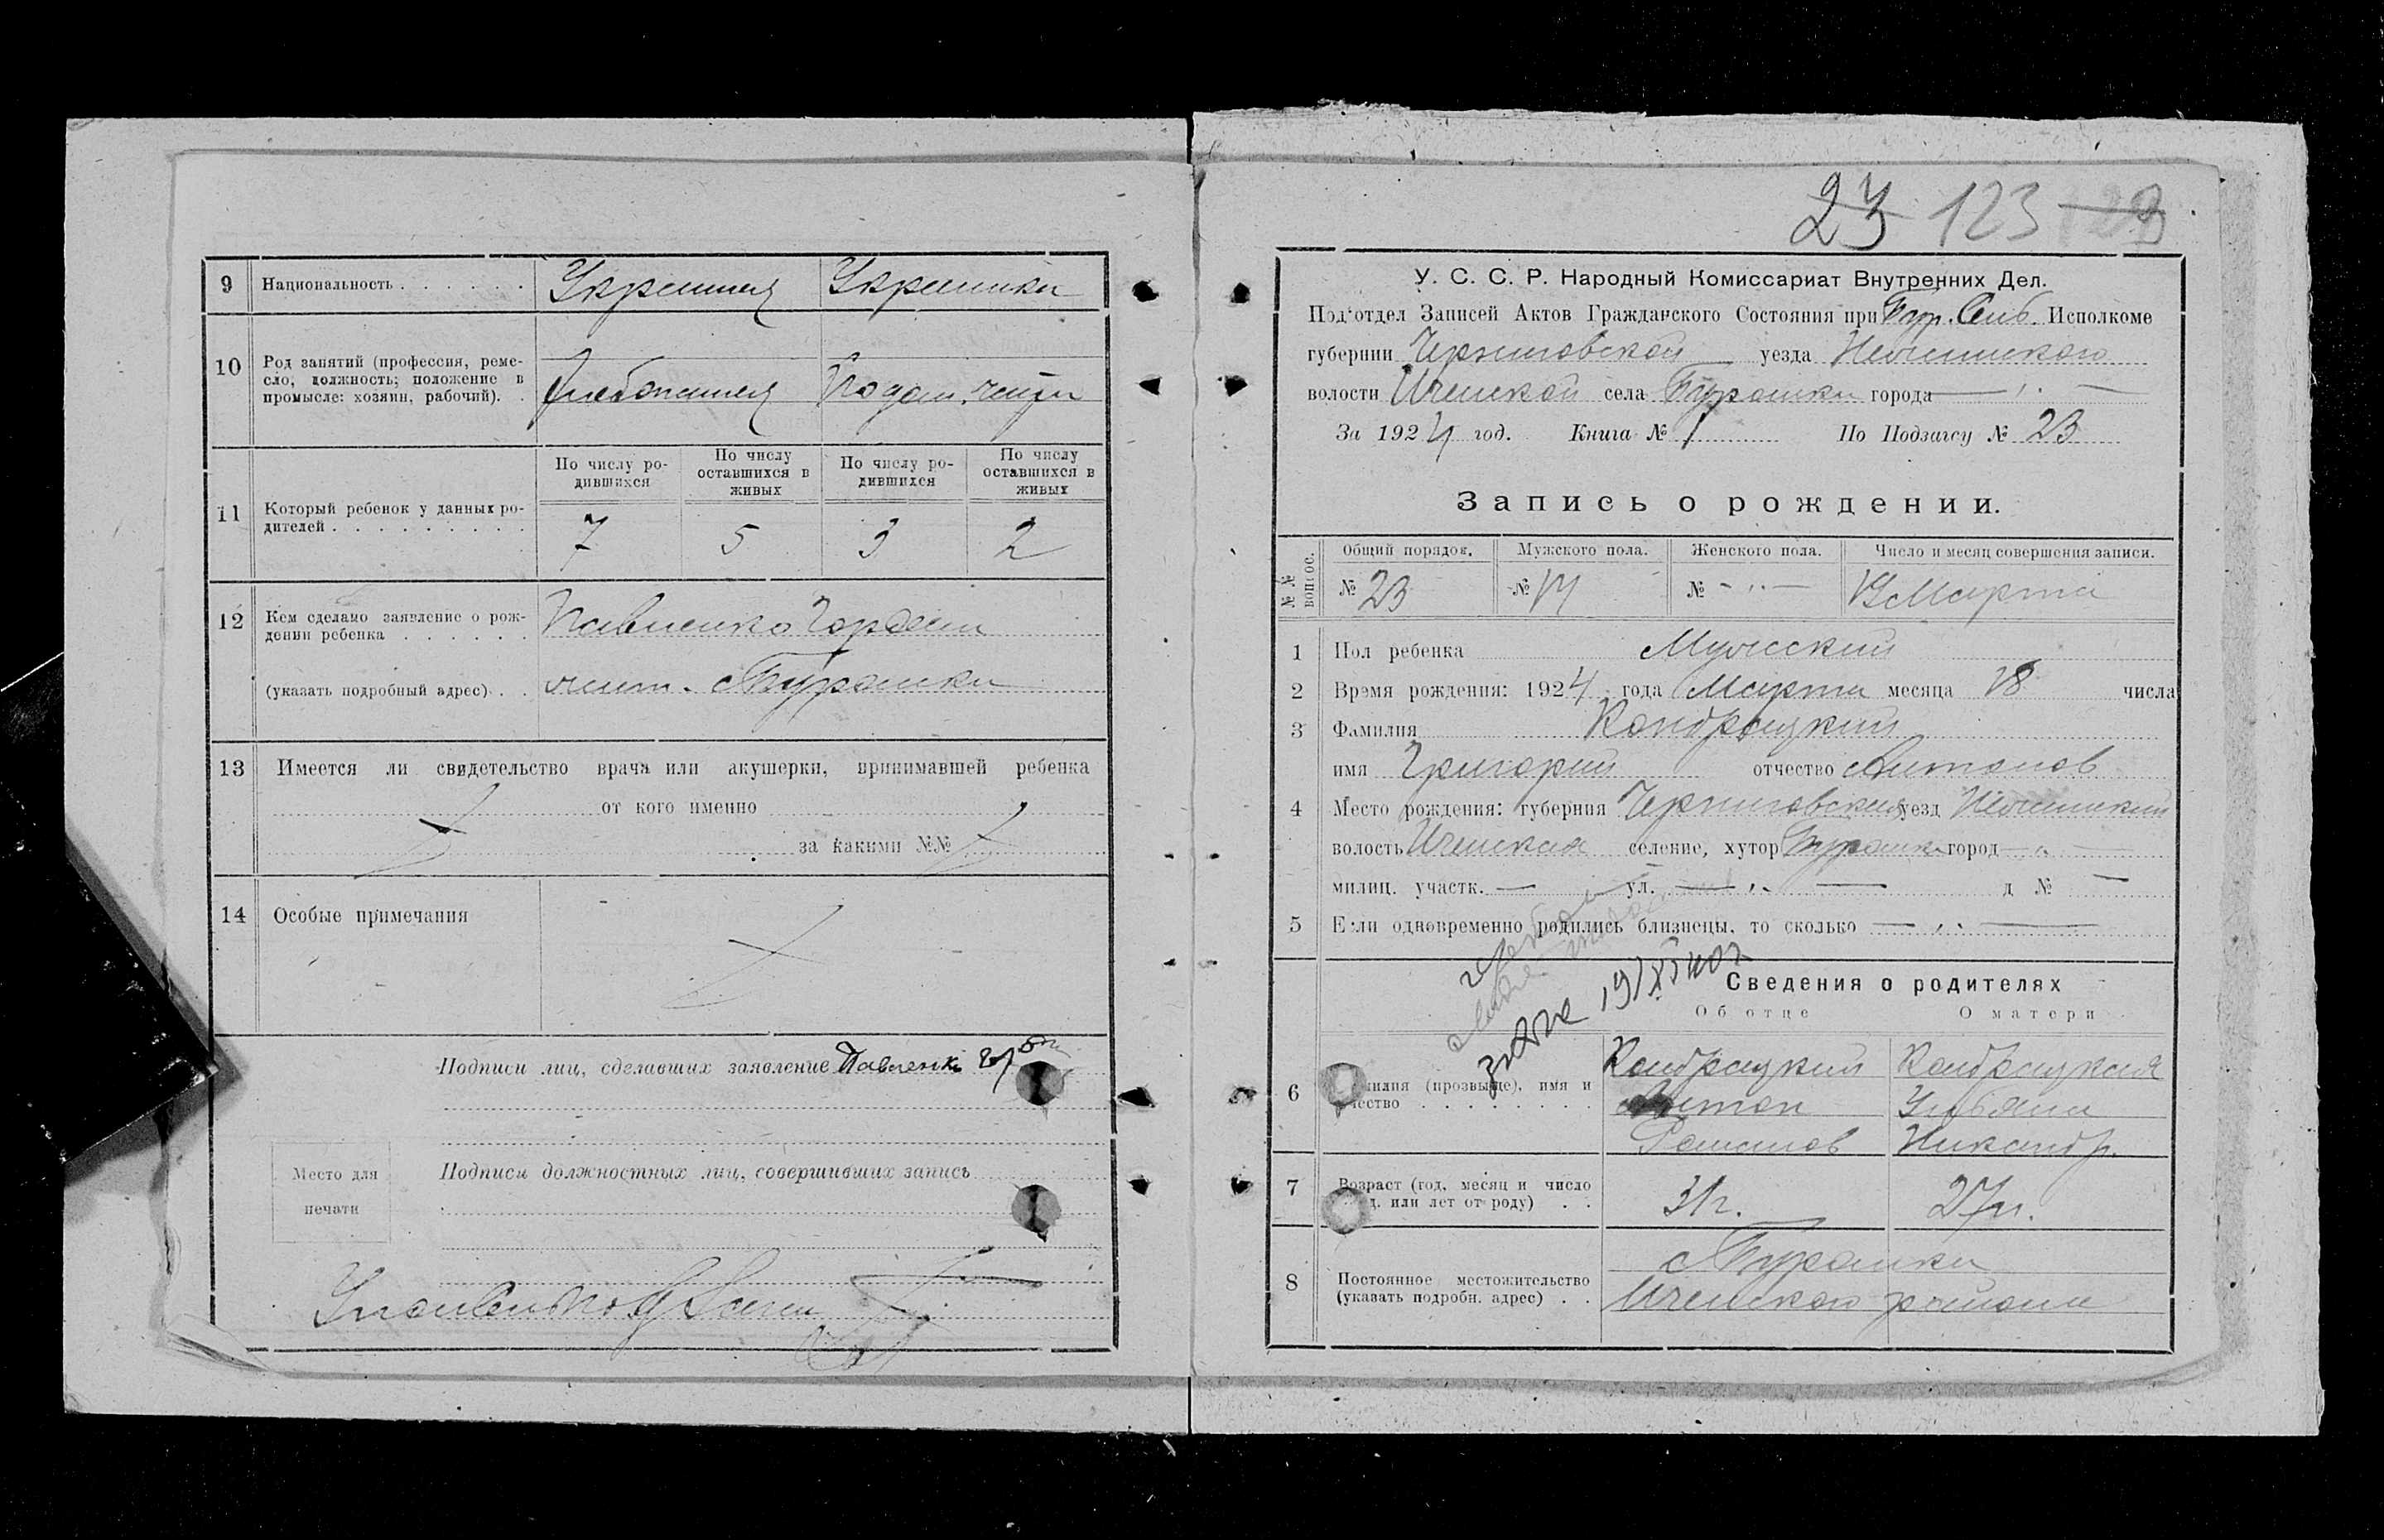 9 Национальность . . . . . . Украинец Украинка
10 Род занятий (профессия, реме-
сло, должность; положение в
промысле: хозяин, рабочий). . Хлебопашец
11 Который ребенок у данных ро-
дителей . . . . . . . . .
По числу ро-
дившихся
По числу
оставшихся в
живых
По числу ро-
дившихся
По числу
оставшихся в
живых
7 5 3 2
12 Кем сделано заявление о рож-
дении ребенка . . . . . . Павленко Гордей
(указать подробный адрес) . . жит. с Бурошки
13 Имеется ли свидетельство врача или акушерки, принимавшей ребенка
от кого именно
за какими №№
14 Особые примечания
Подписи лиц, сделавших заявление Павленко
Подписи должностных лиц, совершивших запись
Место для
печати
23 123
У. С. С. Р. Народный Комиссариат Внутренних Дел.
Под'отдел Записей Актов Гражданского Состояния при Бур. Сель. Исполкоме
губернии Черниговской уезда Нежинского
волости Иченской села Бурошки города — " —
За 1924 год. Книга № 1 По Подзагсу № 23
Запись о рождении.
№ № вопрос.
Общий порядок. Мужского пола. Женского пола. Число и месяц совершения записи.
№ 23 № 14 № - " — 19 Марта
1 Пол ребенка Мужский
2 Время рождения: 1924 года Марта месяца 18 числа
3 Фамилия Кондрацкий
имя Григорий отчество Антонов
4 Место рождения: губерния Черниговская уезд Нежинский
волость Иченская селение, хутор Бурошки город — " —
милиц. участк. — ул. — " — д № —
5 Если одновременно родились близнецы, то сколько — " —
Сведения о родителях
Об отце О матери
6 Фамилия (прозвище), имя и
отчество . . . . . . . .
Кондрацкий Кондрацкая
Антон Ульяна
Романов Никандр.
7 Возраст (год, месяц и число
рожд. или лет от роду) . . 31г. 27л.
8 Постоянное местожительство
(указать подробн. адрес) . .
с Бурошки
Иченского района